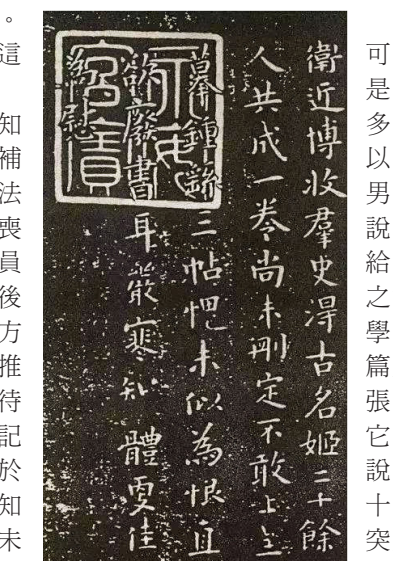 可是多以男說給之學篇張它說十突
衛近博收羣史淂古名姬二十餘
人共成一卷尚未刪定不敢上呈
摹鍾繇三帖愧未似為恨直
欲廢書耳嚴寒知體更佳
慰
永安
宮寶
。這知補法喪員後方推待記於知未